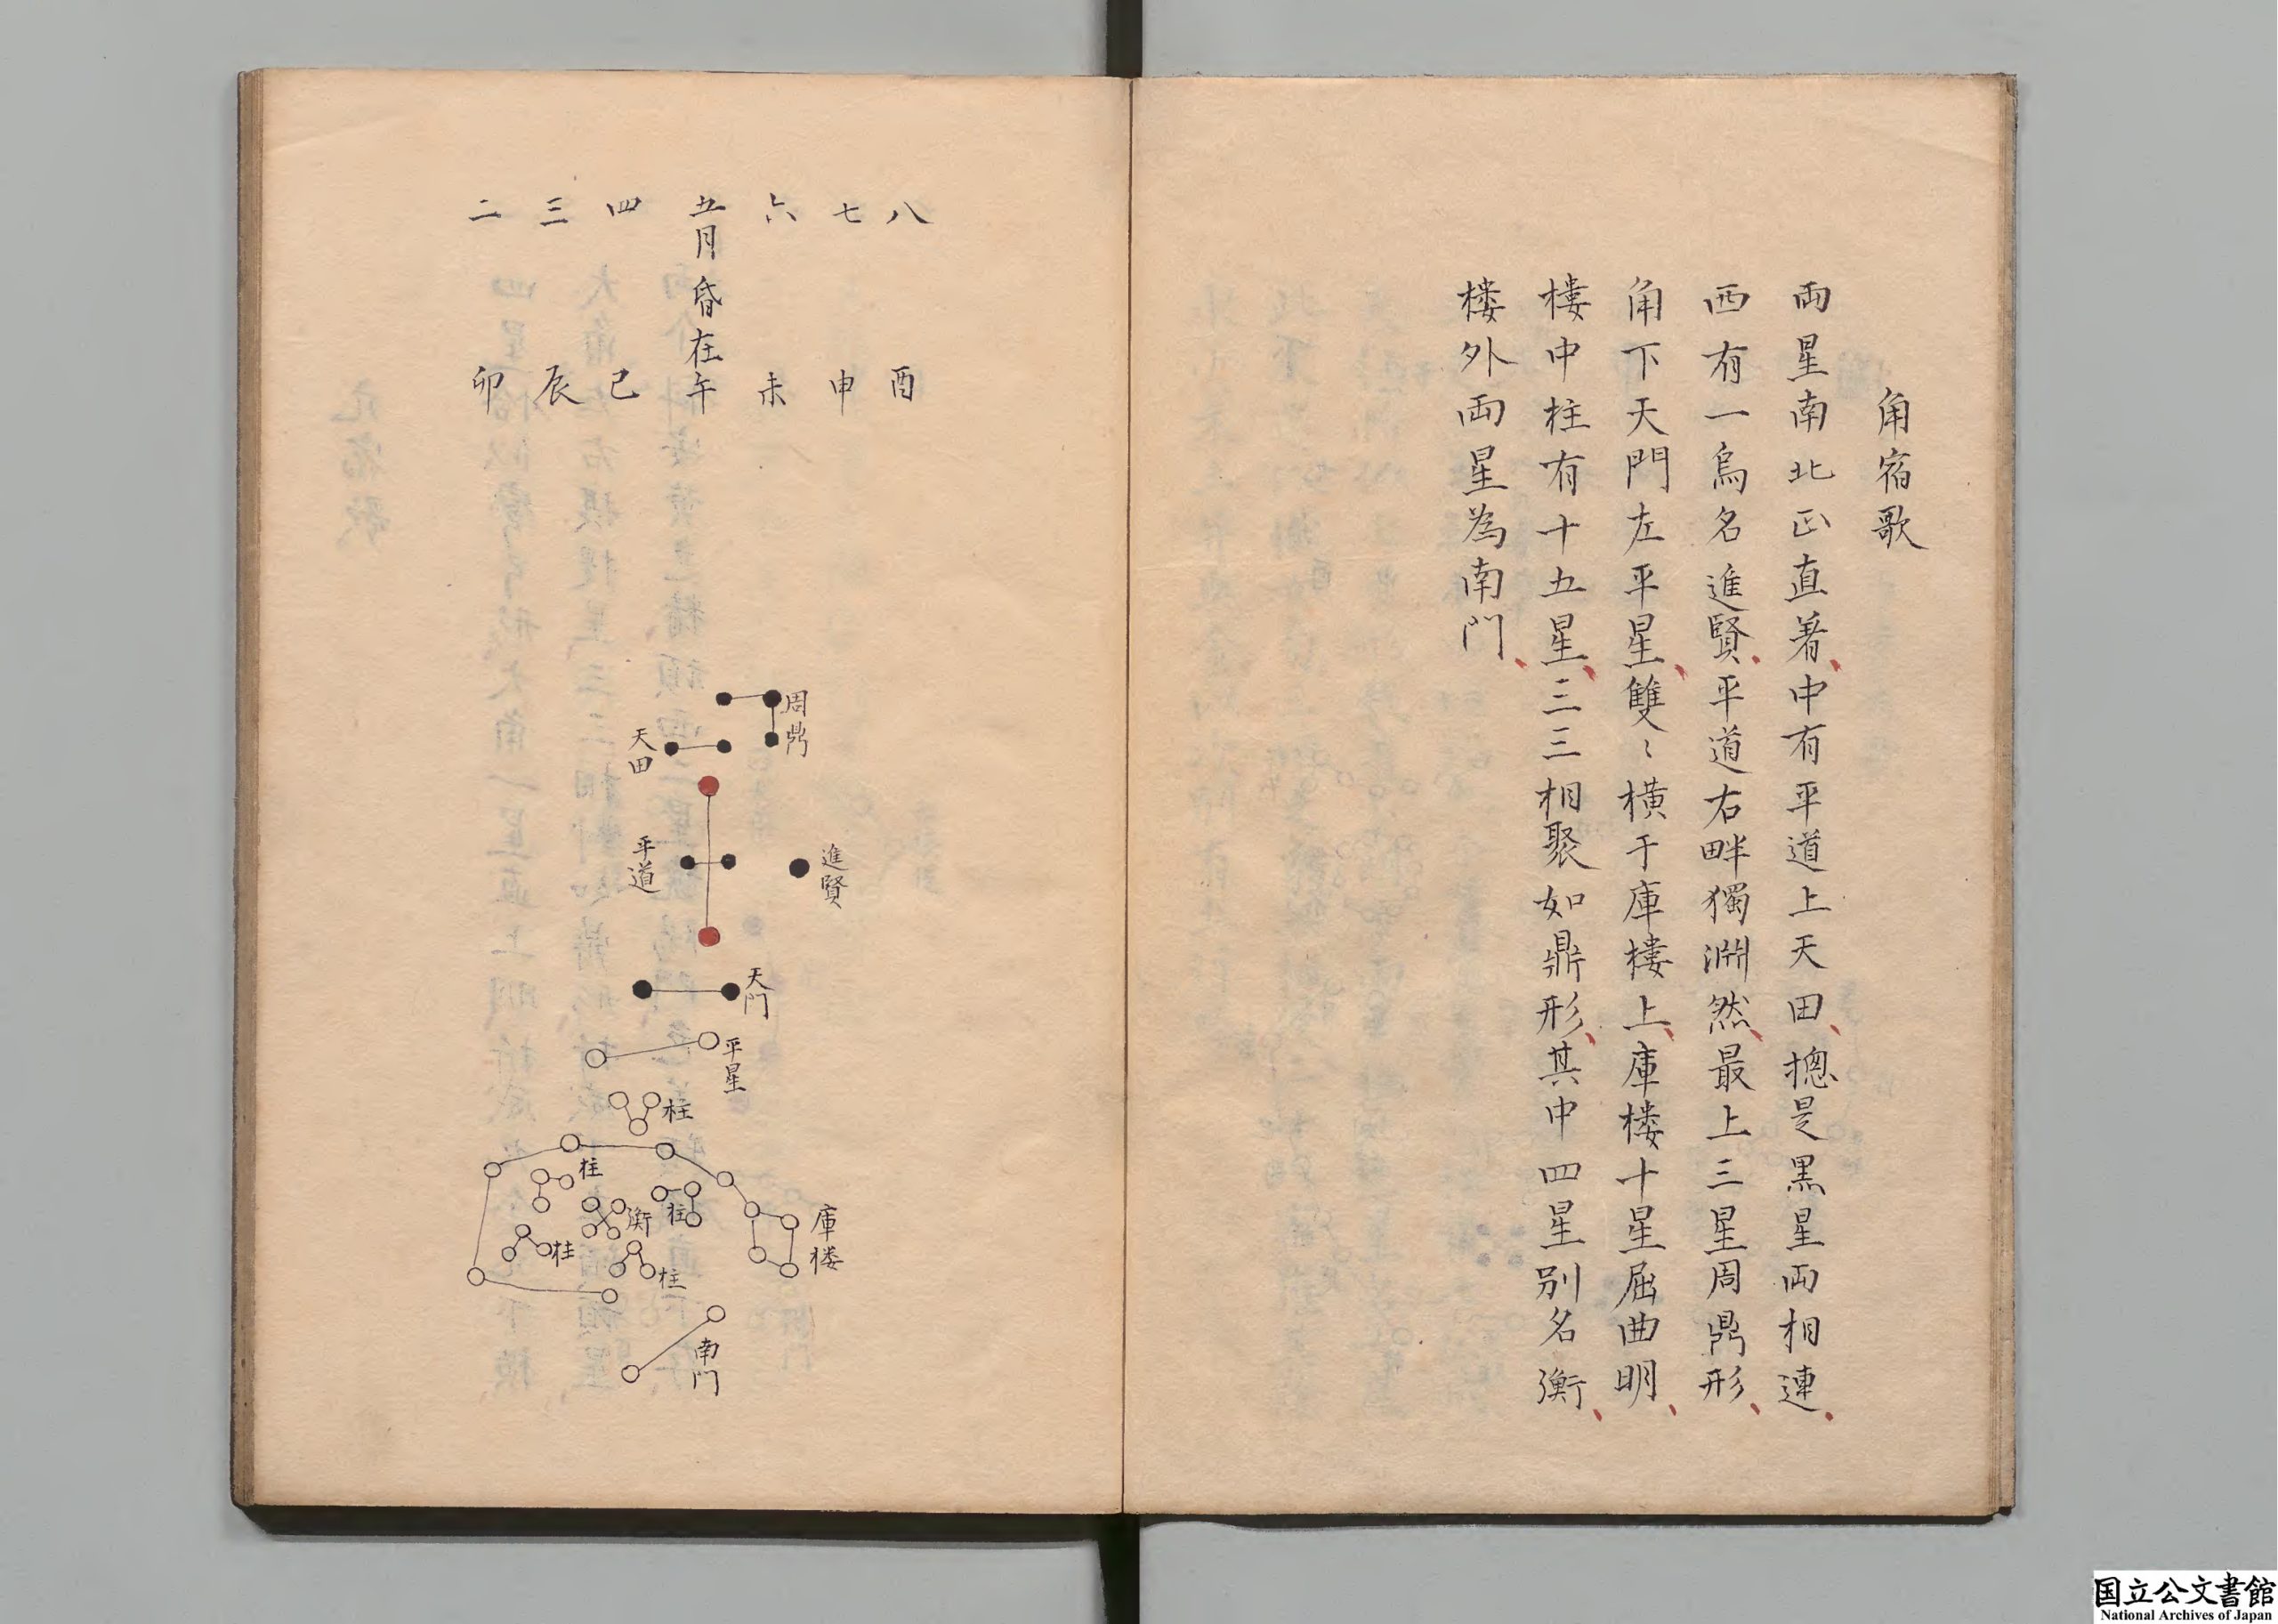 角宿歌
両星南北正直著中有平道上天田摠是黒星両相連
西有一烏名進賢平道右畔獨淵然最上三星周鼎形
角下天門左平星雙〻横于庫楼上庫楼十星屈曲明
楼中柱有十五星三三相聚如鼎形其中四星別名衡
楼外両星為南門
八 七 六 五月 四 三 二
昏在
酉 申 未 午 巳 辰 卯
周鼎
天田
進賢
平道
天門
平星
柱
柱
柱
衡
庫楼
柱
柱
南門
国立公文書館
National Archives of Japan